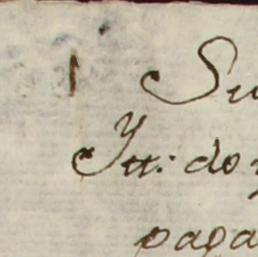 Su
Ytt: do
paga